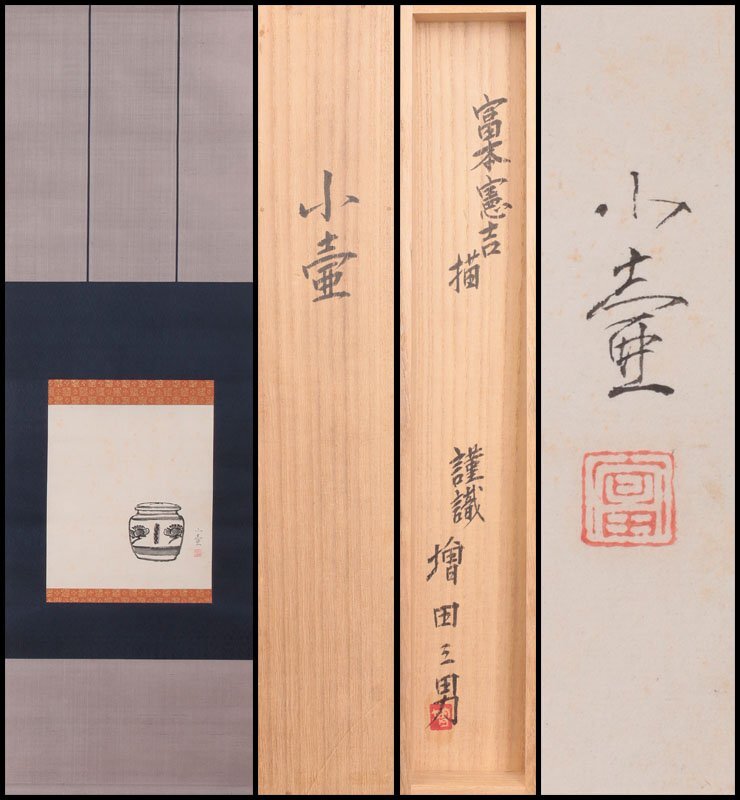 小壷
小壷
富本憲吉
描
謹識
増田三男
小壷
富